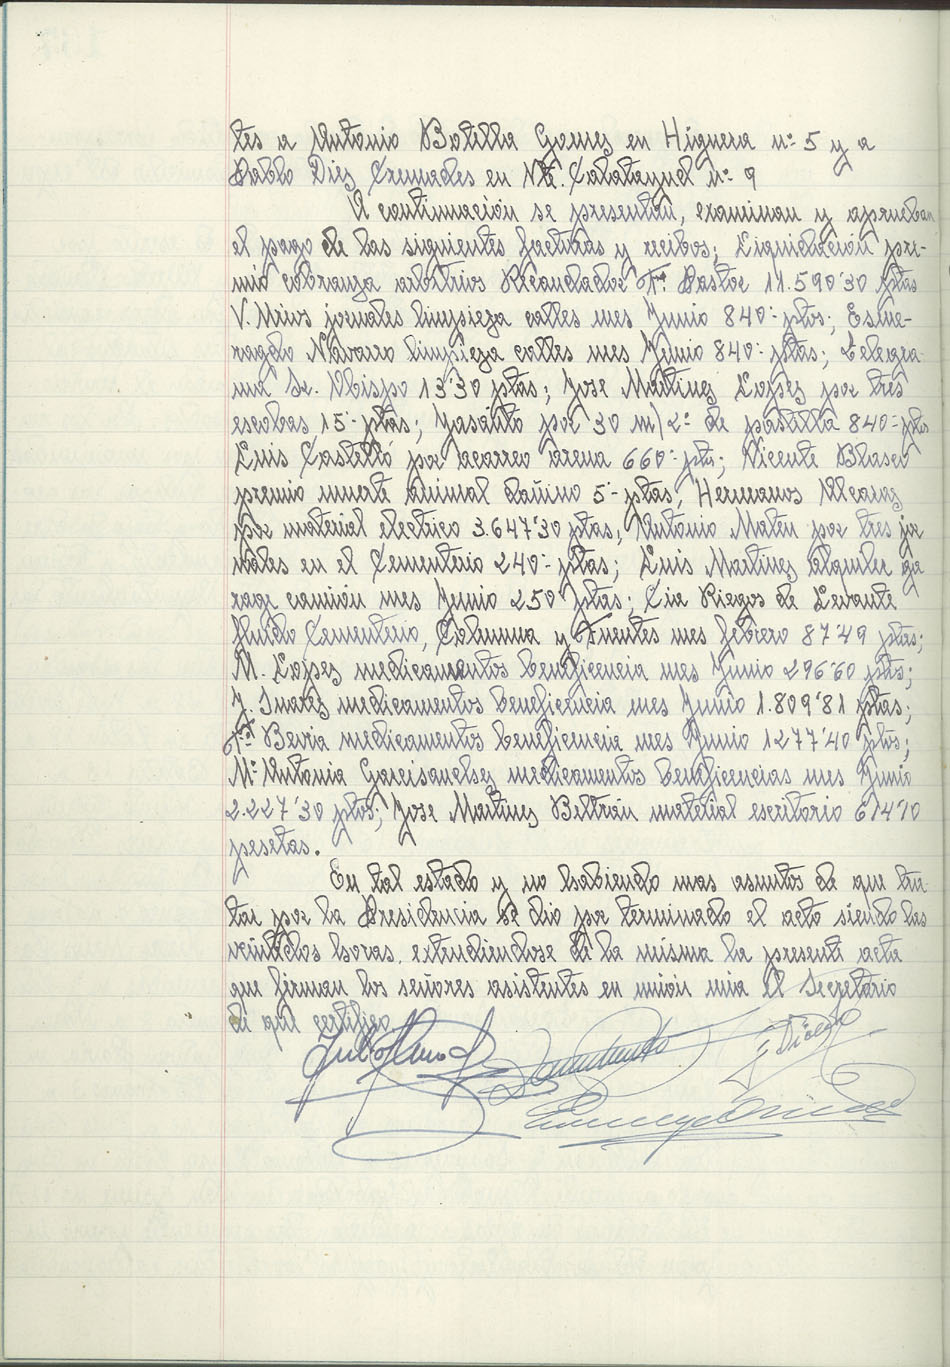 tes a Antonio Botella Gomez en Higuera nº 5 y a
Pablo Diez Cremades en Vte. Calatayud nº 9
A continuación se presentan, examinan y aprueban
el pago de las siguientes facturas y recibos; Liquidación pre-
mio cobranza arbitrios Recaudador Fº Pastor 11.590'30 ptas
V. Mirus jornales limpieza calles mes Junio 840- ptas; Esme-
ragdo Navarro limpieza calles mes Junio 840- ptas; Telegra-
ma Sr. Obispo 13'30 ptas; Jose Martinez Lopez por tres
escobas 15- ptas; Jasanto por 30 m/2º de pastilla 840- ptas
Luis Castelló por acarreo arena 660- ptas; Vicente Blasco
premio muerte animal dañino 5- ptas, Hermanos Alcaraz
por material electrico 3.647'30 ptas, Antonio Mateu por tres jor
nales en el Cementerio 240- ptas; Luis Martinez alquiler ga
rage camión mes Junio 250 ptas; Cia Riegos de Levante
fluido Cementerio, Columna y Fuentes mes febrero 87'49 ptas;
M. Lopez medicamentos beneficencia mes Junio 296'60 ptas;
J. Suarez medicamentos beneficencia mes Junio 1.809'81 ptas;
Fº Bevia medicamentos beneficencia mes Junio 1277'40 ptas;
Mª Antonia Garcisanchez medicamentos beneficencias mes Junio
2.227'30 ptas; Jose Martinez Beltrán material escritorio 614'70
pesetas.
En tal estado y no habiendo mas asuntos de que tra-
tar por la Presidencia se dio por terminado el acto siendo las
veintidos horas. extendiendose de la misma la presente acta
que firman los señores asistentes en unión mia el Secretario
de que certifico